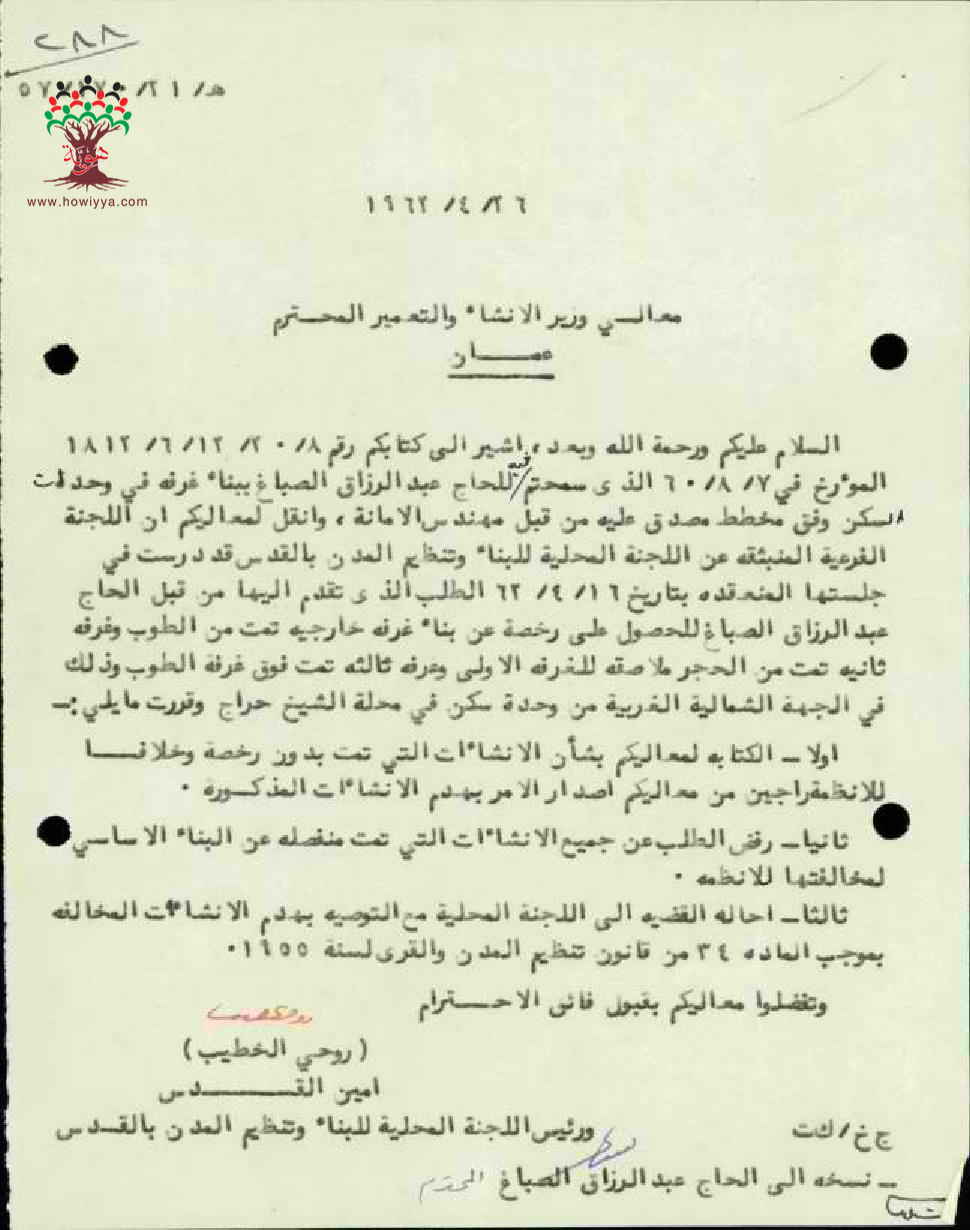 ٢٨٨
هـ/٢١/
هوية
www.howiyya.com
١٩٦٢ /٤ /٢٦
معالــي وزير الانشاء والتعمير المحــترم
عمـــــان
السلام عليكم ورحمة الله وبعد ، اشير الى كتابكم رقم ٢٠/٨/ ١٢/ ٦/ ١٨١٢
المؤرخ في ٧/ ٨/ ٦٠ الذى سمحتم فيه للحاج عبد الرزاق الصباغ ببناء غرفه في وحدات
السكن وفق مخطط مصدق عليه من قبل مهندس الامانة ، وانقل لمعاليكم ان اللجنة
الفرعية المنبثقه عن اللجنة المحلية للبناء وتنظيم المدن بالقدس قد درست في
جلستها المنعقده بتاريخ ١٦/ ٤/ ٦٢ الطلب الذى تقدم اليها من قبل الحاج
عبد الرزاق الصباغ للحصول على رخصة عن بناء غرفه خارجيه تمت من الطوب وغرفه
ثانيه تمت من الحجر ملاصقه للغرفه الاولى وغرفه ثالثه تمت فوق غرفة الطوب وذلك
في الجهة الشمالية الغربية من وحدة سكن في محلة الشيخ جراح وقررت مايلي :ـ
اولا ـ الكتابه لمعاليكم بشأن الانشاءات التي تمت بدون رخصة وخلافــــا
للانظمة راجين من معاليكم اصدار الامر بهدم الانشاءات المذكــورة ٠
ثانيا ـ رفض الطلب عن جميع الانشاءات التي تمت منفصله عن البناء الاساسي
لمخالفتها للانظمه ٠
ثالثا ـ احاله القضيه الى اللجنة المحلية مع التوصيه بهدم الانشاءات المخالفه
بموجب الماده ٣٤ من قانون تنظيم المدن والقرى لسنة ١٩٥٥ ٠
وتفضلوا معاليكم بقبول فائق الاحـــترام
(روحي الخطيب)
امين القـــــــدس
ج خ/ ك ت
ورئيس اللجنة المحلية للبناء وتنظيم المدن بالقــدس
ـ نسخه الى الحاج عبد الرزاق الصباغ المحترم